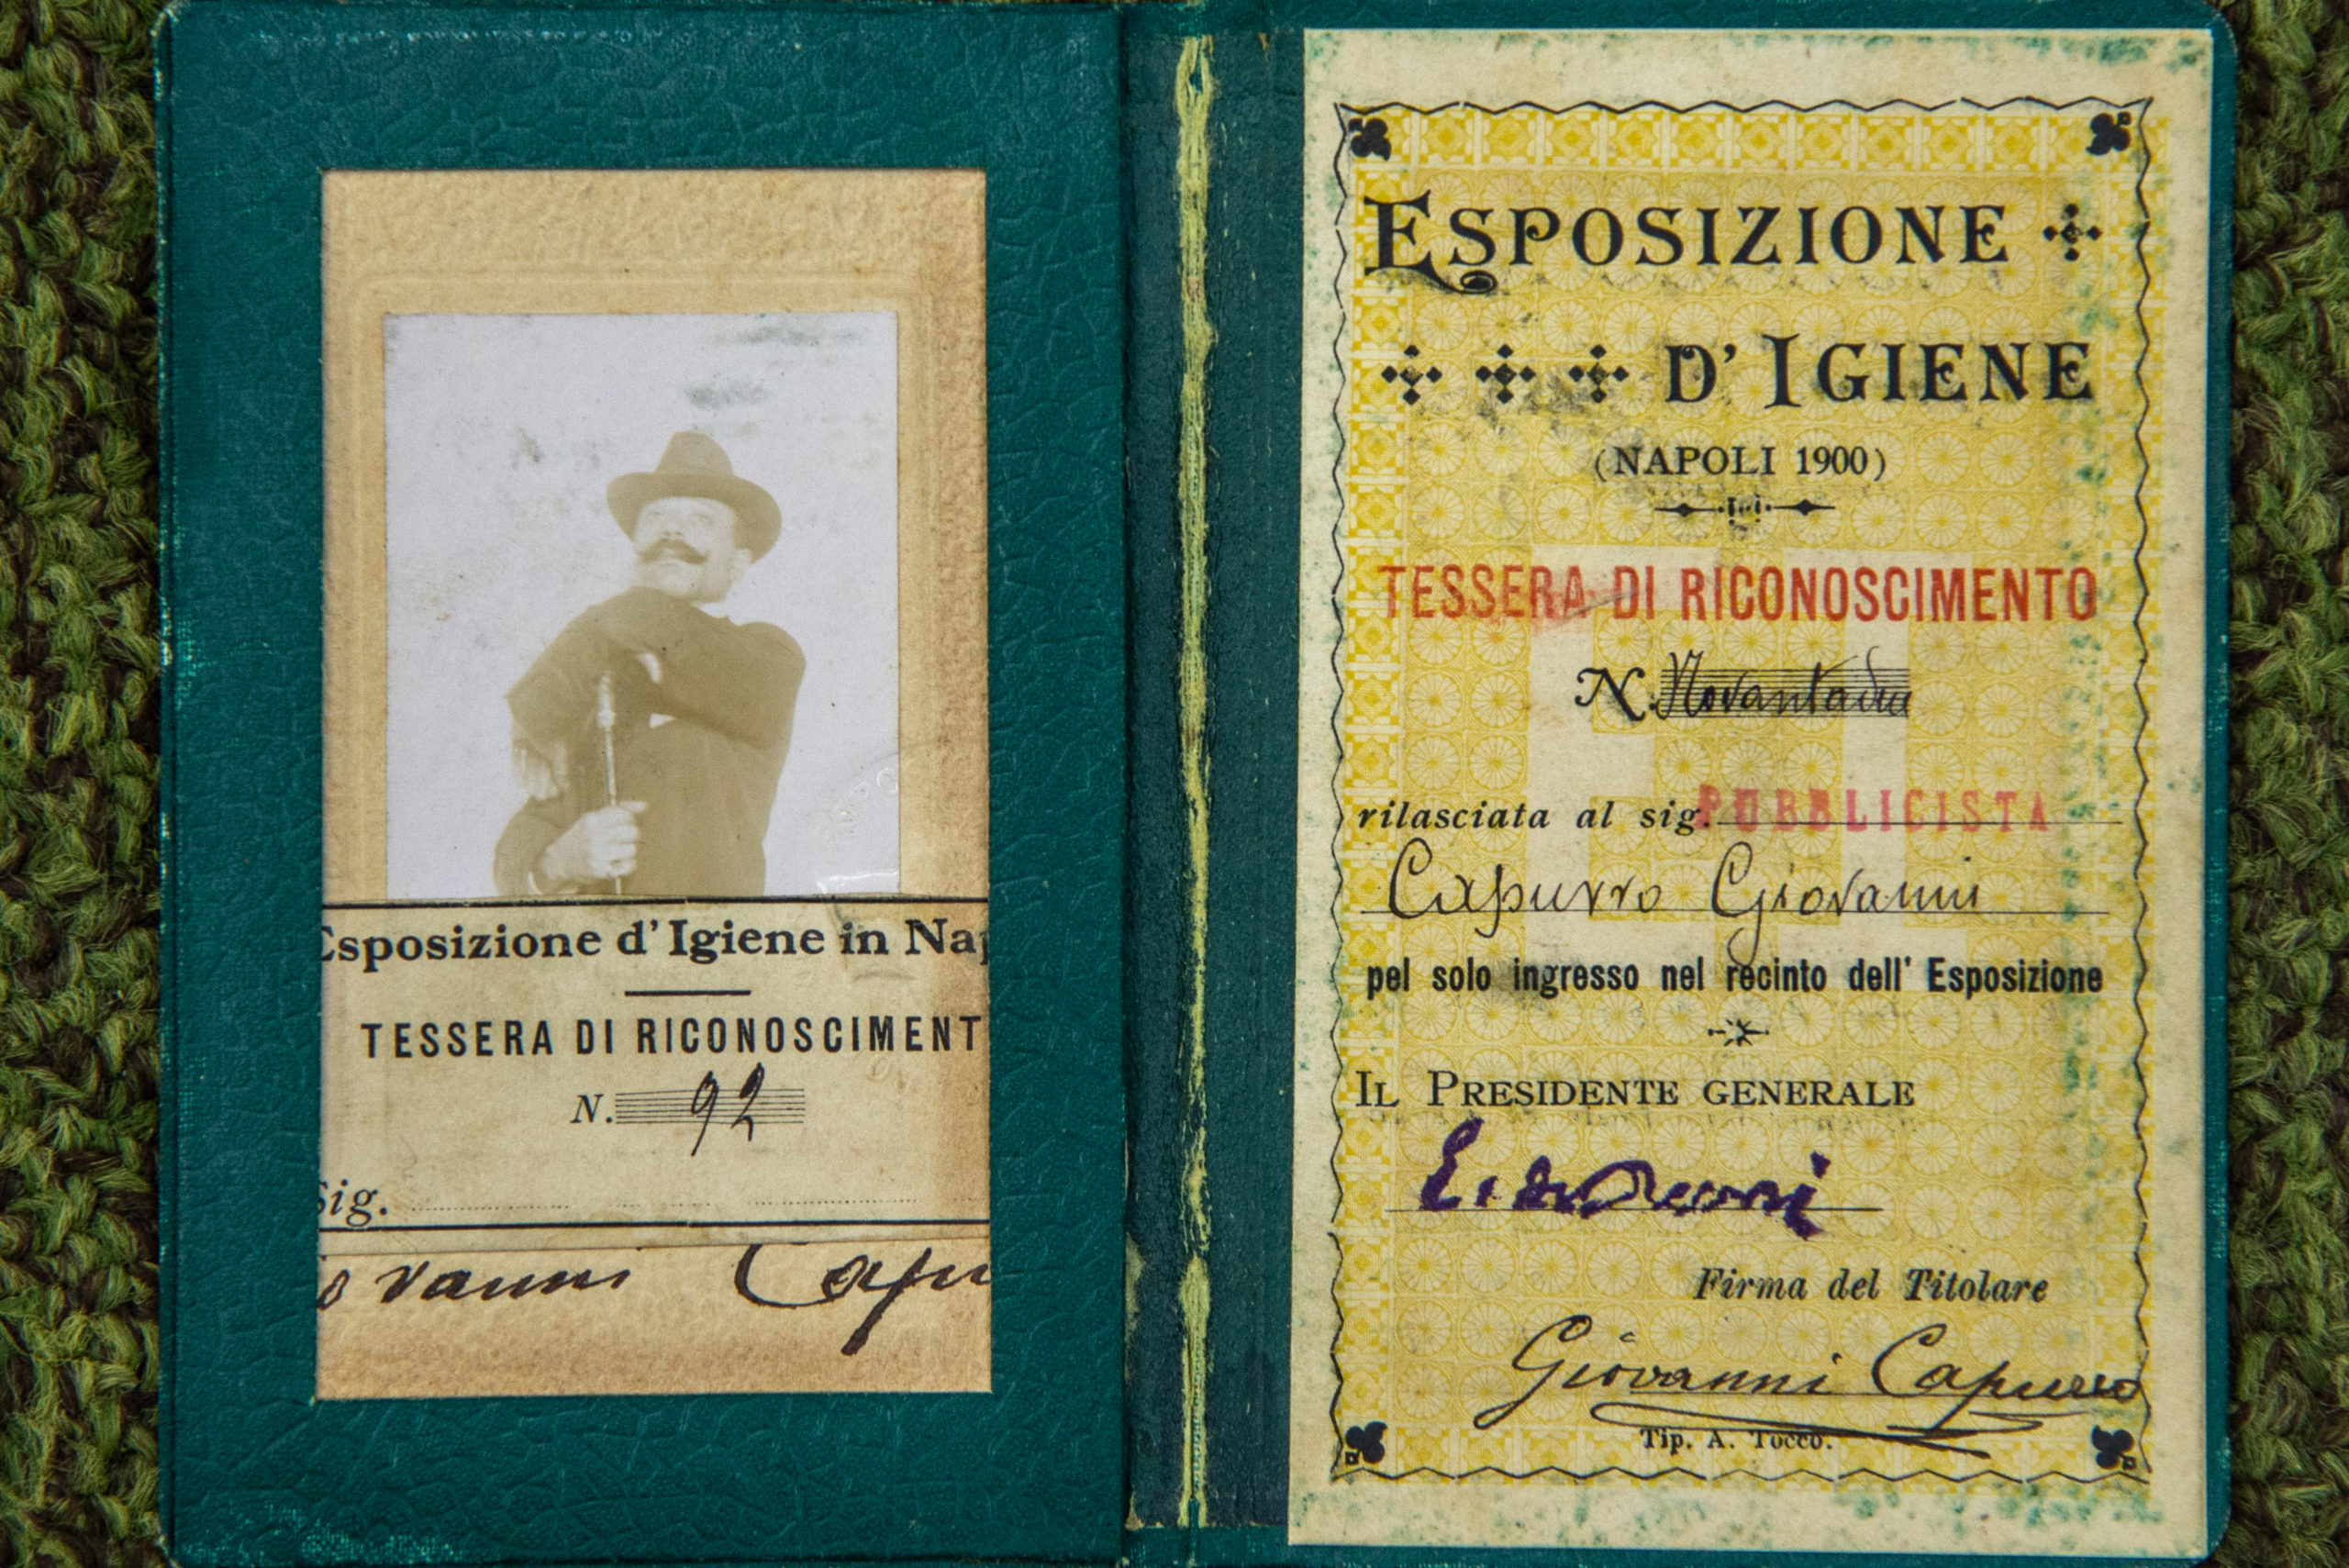 Esposizione d'Igiene in Nap
TESSERA DI RICONOSCIMENT
N. 92
Sig.
ovanni Capu
ESPOSIZIONE
D'IGIENE
(NAPOLI 1900)
TESSERA DI RICONOSCIMENTO
N. Novantadue
rilasciata al sig. PUBBLICISTA
Capurro Giovanni
pel solo ingresso nel recinto dell' Esposizione
IL PRESIDENTE GENERALE
Firma del Titolare
Giovanni Capurro
Tip. A. Tocco.